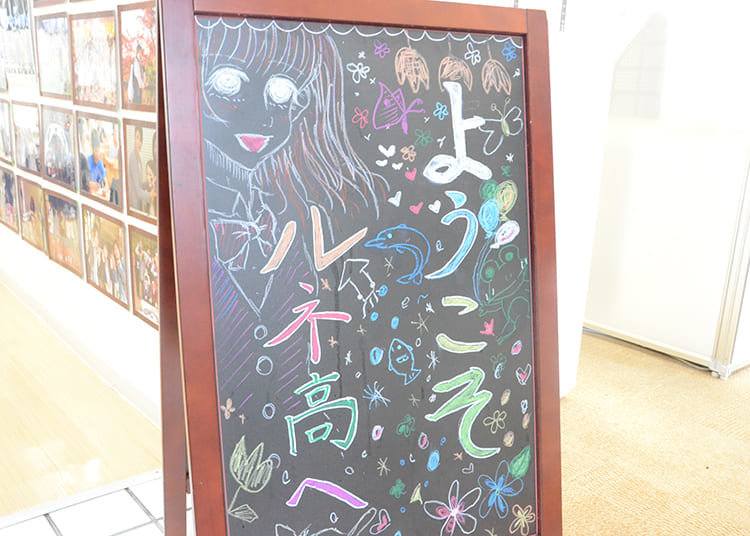 ようこそ
ルネ高へ